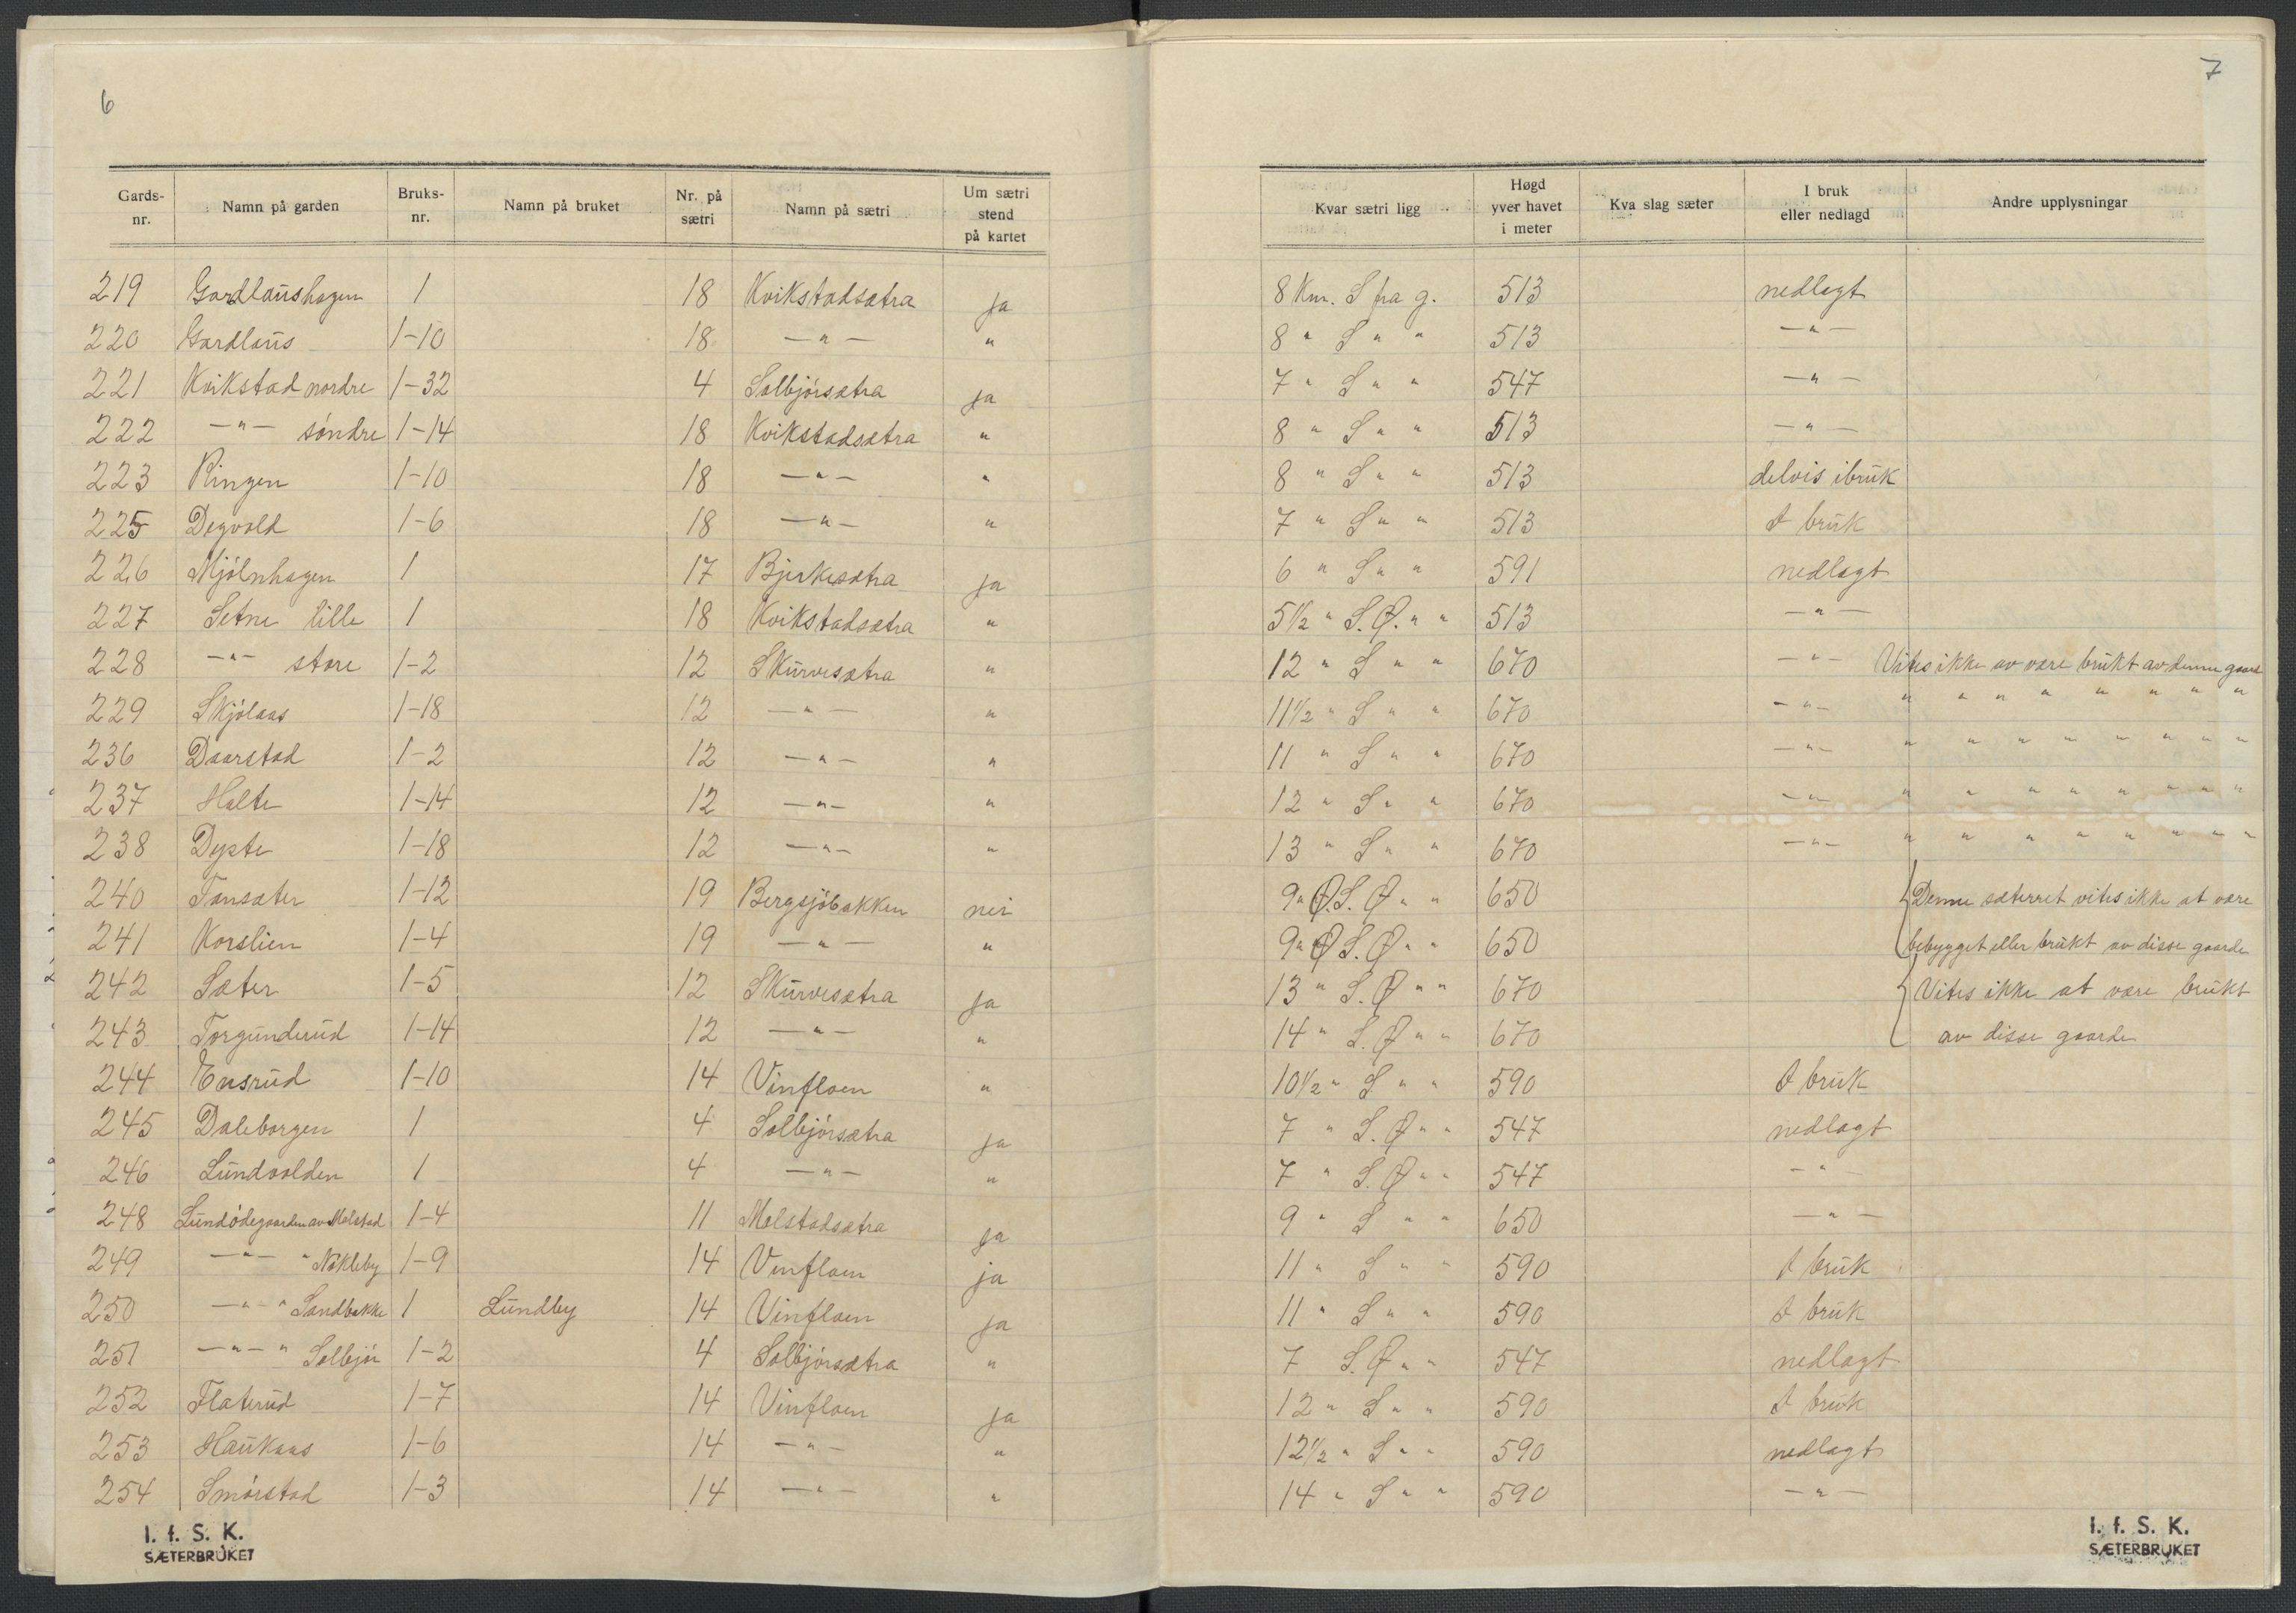 6
Gards-nr. Namn på garden Bruks-nr. Namn på bruket Nr. på sætri Namn på sætri Um sætri stend på kartet
219 Gardlaushagen 1 18 Kvikstadsætra ja
220 Gardlaus 1-10 18 -"- "
221 Kvikstad nordre 1-32 4 Solbjørsætra ja
222 -"- søndre 1-14 18 Kvikstadsætra "
223 Ringen 1-10 18 -"- "
225 Degvold 1-6 18 -"- "
226 Mjølnhagen 1 17 Bjerkesætra ja
227 Setne lille 1 18 Kvikstadsætra "
228 -"- store 1-2 12 Skurvesætra "
229 Skjølaas 1-18 12 -"- "
236 Daarstad 1-2 12 -"- "
237 Holte 1-14 12 -"- "
238 Dyste 1-18 12 -"- "
240 Tønsæter 1-12 19 Bergsjøbakken nei
241 Korslien 1-4 19 -"- "
242 Sæter 1-5 12 Skurvesætra ja
243 Torgunderud 1-14 12 -"- "
244 Ensrud 1-10 14 Vinfloen "
245 Daleborgen 1 4 Solbjørsætra ja
246 Lundvolden 1 4 -"- "
248 Lundødegaarden av Melstad 1-4 11 Melstadsætra ja
249 -"- " Nøkleby 1-9 14 Vinfloen ja
250 -"- " Sandbakke 1 Lundby 14 Vinfloen ja
251 -"- " Solbjør 1-2 4 Solbjørsætra "
252 Flaterud 1-7 14 Vinfloen ja
253 Haukaas 1-6 14 -"- "
254 Smørstad 1-3 14 -"- "
I. f. S. K.
SÆTERBRUKET
7
Kvar sætri ligg Høgd yver havet i meter Kva slag sæter I bruk eller nedlagd Andre upplysningar
8 Km. S fra g. 513 nedlagt
8 " S " " 513 -"-
7 " S " " 547 -"-
8 " S " " 513 -"-
8 " S " " 513 delvis ibruk
7 " S " " 513 I bruk
6 " S " " 591 nedlagt
5½ " S.Ø. " " 513 -"-
12 " S " " 670 -"- Vites ikke av være brukt av denne gaard
11½ " S " " 670 -"- " " " " " " " "
11 " S " " 670 -"- " " " " " " " "
12 " S " " 670 -"- " " " " " " " "
13 " S " " 670 -"- " " " " " " " "
9 " Ø.S.Ø " " 650 Denne sæterret vites ikke at være
9 " Ø S.Ø " " 650 bebygget eller brukt av disse gaarde
13 " S.Ø " " 670 Vites ikke at være brukt
14 " S.Ø " " 670 av disse gaarde
10½ " S " " 590 I bruk
7 " S.Ø " " 547 nedlagt
7 " S.Ø " " 547 -"-
9 " S " " 650 -"-
11 " S " " 590 I bruk
11 " S " " 590 I bruk
7 S.Ø " " 547 nedlagt
12 " S " " 590 I bruk
12½ " S " " 590 nedlagt
14 " S " " 590 -"-
I. f. S. K.
SÆTERBRUKET